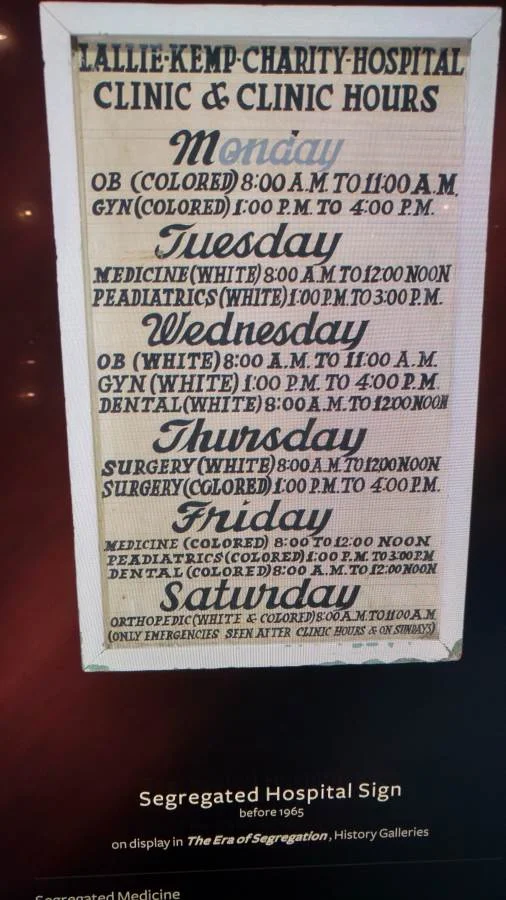 LALLIE-KEMP-CHARITY-HOSPITAL
CLINIC & CLINIC HOURS
Monday
OB (COLORED) 8:00 A.M. TO 11:00 A.M.
GYN (COLORED) 1:00 P.M. TO 4:00 P.M.
Tuesday
MEDICINE (WHITE) 8:00 A.M. TO 12:00 NOON
PEADIATRICS (WHITE) 1:00 P.M. TO 3:00 P.M.
Wednesday
OB (WHITE) 8:00 A.M. TO 11:00 A.M.
GYN (WHITE) 1:00 P.M. TO 4:00 P.M.
DENTAL (WHITE) 8:00 A.M. TO 12:00 NOON
Thursday
SURGERY (WHITE) 8:00 A.M. TO 12:00 NOON
SURGERY (COLORED) 1:00 P.M. TO 4:00 P.M.
Friday
MEDICINE (COLORED) 8:00 TO 12:00 NOON
PEADIATRICS (COLORED) 1:00 P.M. TO 3:00 P.M
DENTAL (COLORED) 8:00 A.M. TO 12:00 NOON
Saturday
ORTHOPEDIC (WHITE & COLORED) 8:00 A.M. TO 11:00 A.M.
(ONLY EMERGENCIES SEEN AFTER CLINIC HOURS & ON SUNDAYS)
Segregated Hospital Sign
before 1965
on display in The Era of Segregation, History Galleries
Segregated Medicine